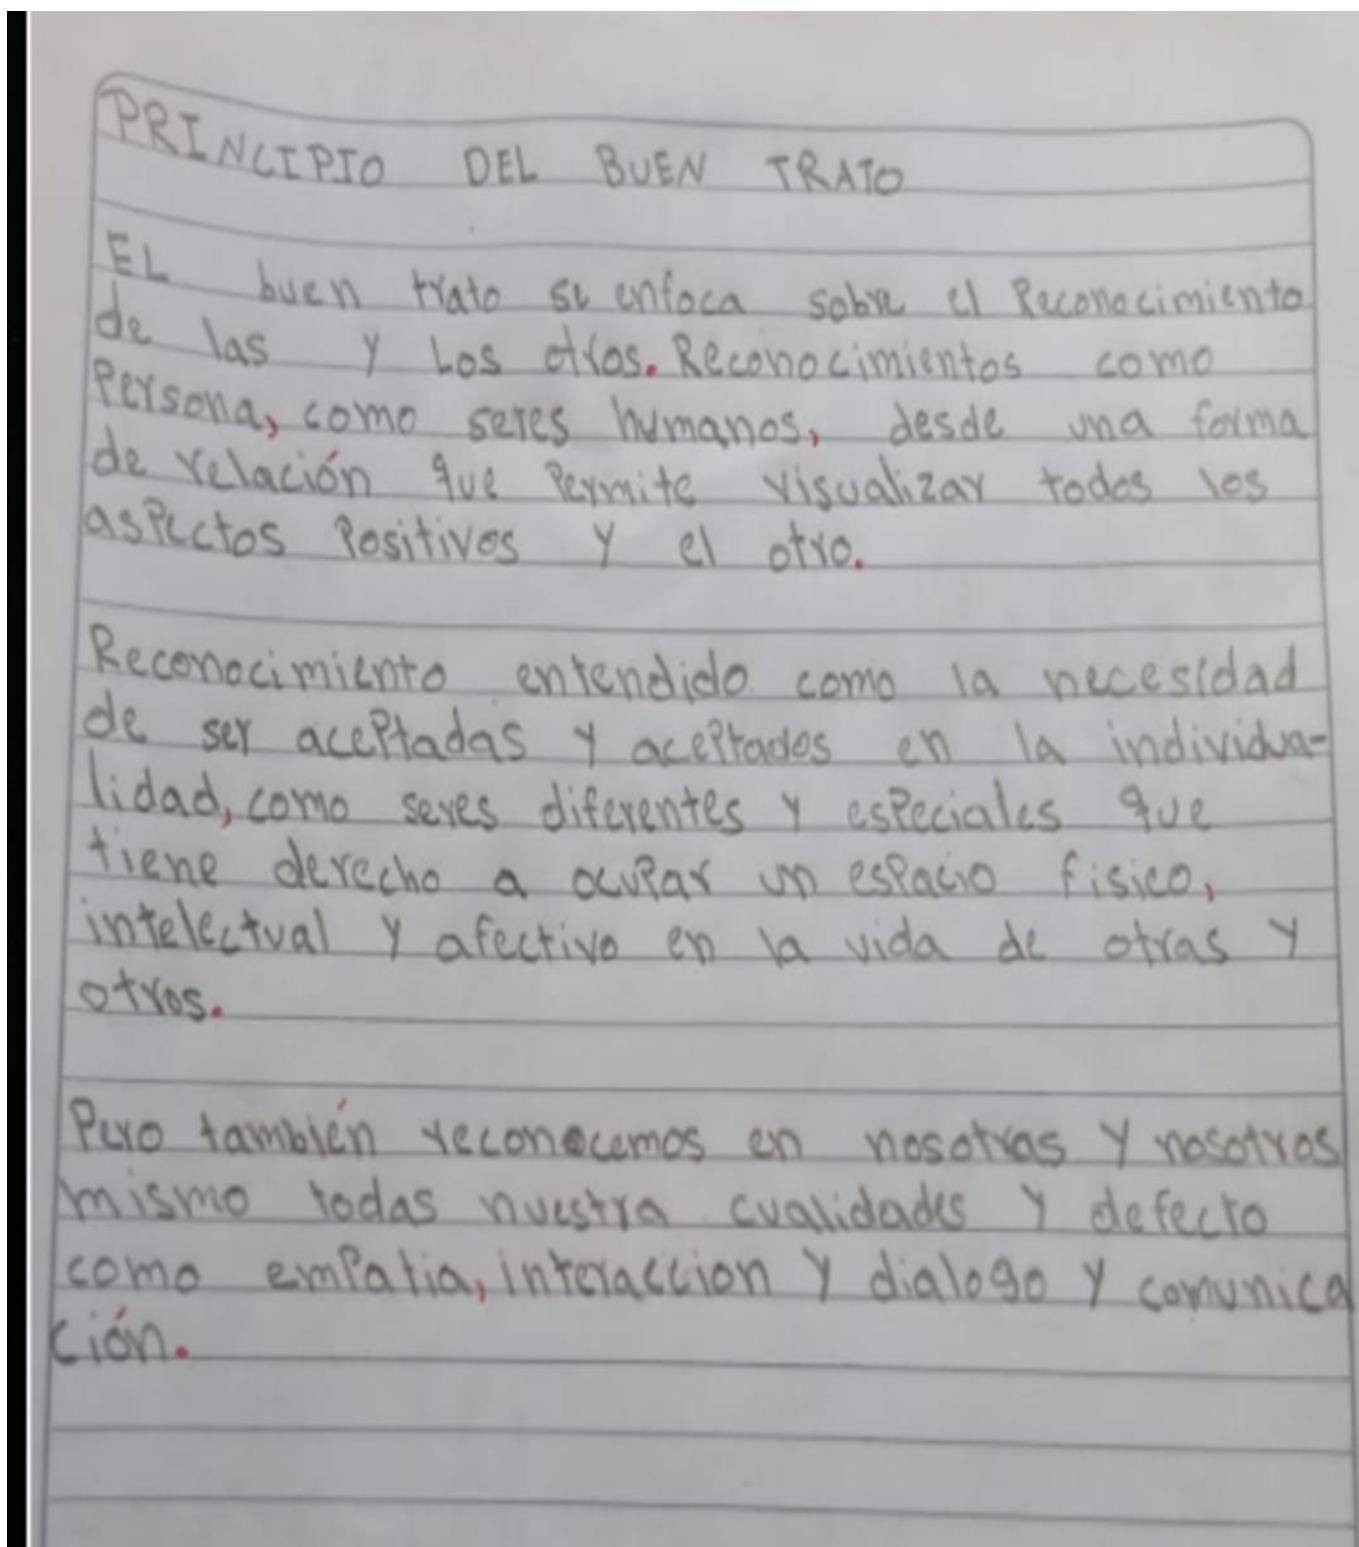 PRINCIPIO DEL BUEN TRATO
EL buen trato se enfoca sobre el Reconocimiento
de las y Los otros. Reconocimientos como
Persona, como seres humanos, desde una forma
de relación que Permite visualizar todos los
aspectos Positivos y el otro.
Reconocimiento entendido como la necesidad
de ser aceptadas y aceptados en la individua-
lidad, como seres diferentes y especiales que
tiene derecho a ocupar un espacio fisico,
intelectual y afectivo en la vida de otras y
otros.
Pero también reconocemos en nosotras y nosotros
mismo todas nuestra cualidades y defecto
como empatia, interaccion y dialogo y comunica
ción.